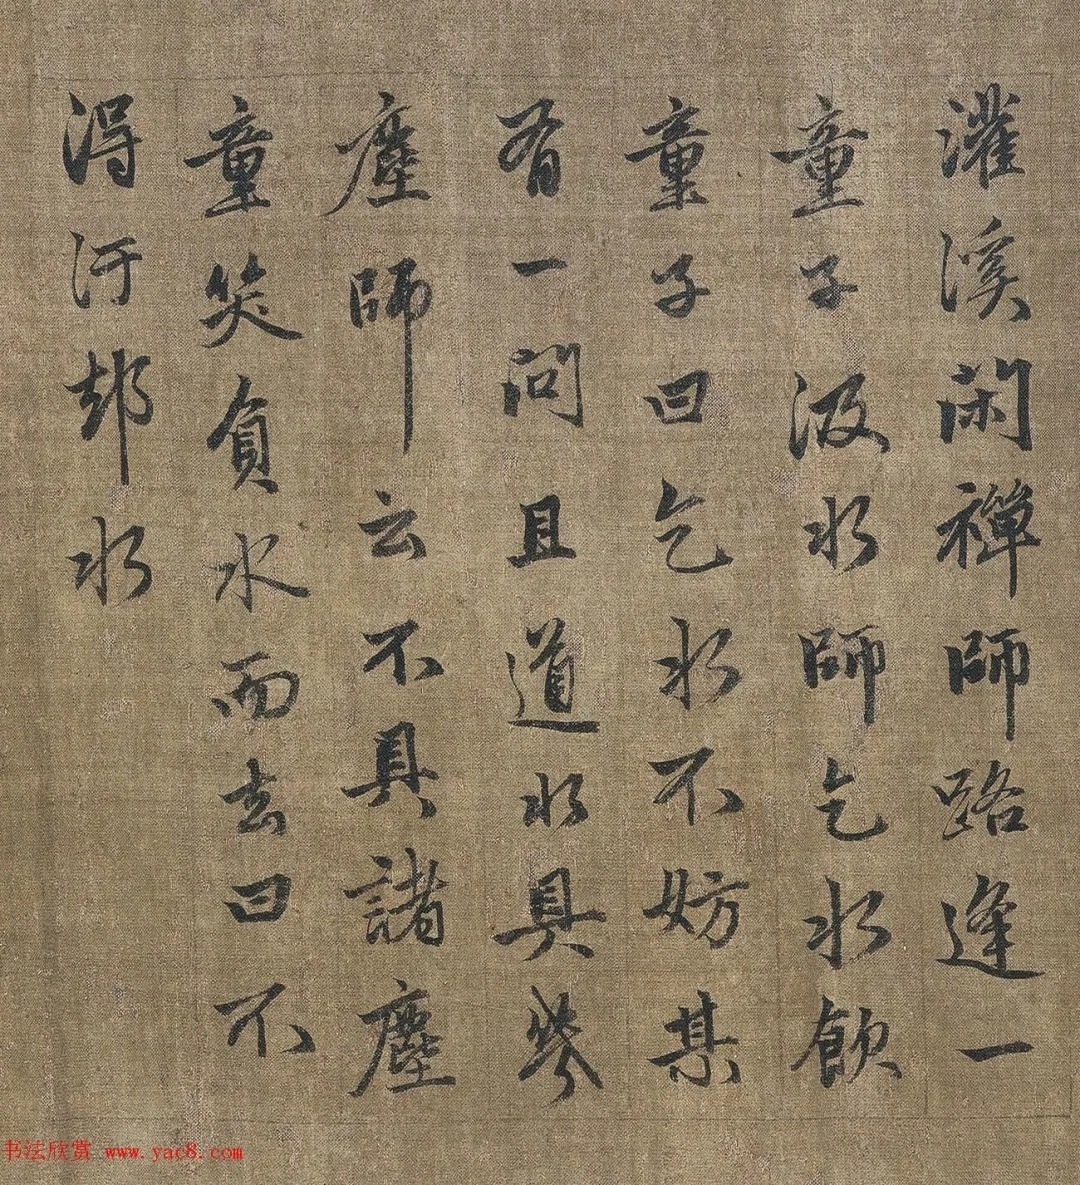 灌溪閑禪師路逢一
童子汲水師乞水飲
童子曰乞水不妨某
有一問且道水具幾
塵師云不具諸塵
童笑負水而去曰不
得汙却水
书法欣赏 www.yac8.com